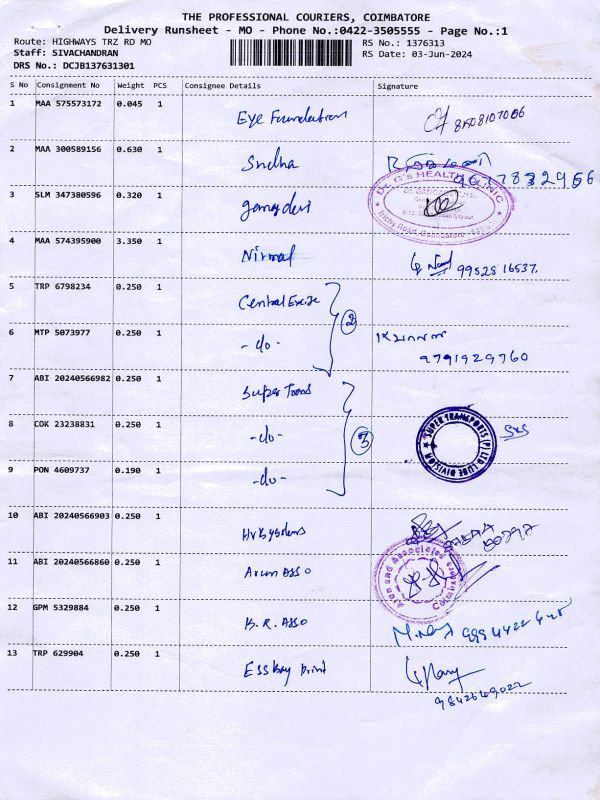 THE PROFESSIONAL COURIERS, COIMBATORE
Delivery Runsheet - MO - Phone No.:0422-3505555 - Page No.:1
Route: HIGHWAYS TRZ RD MO RS No.: 1376313
Staff: SIVACHANDRAN RS Date: 03-Jun-2024
DRS No.: DCJB137631301
S No Consignment No Weight PCS Consignee Details Signature
1 MAA 575573172 0.045 1 Eye Foundation
2 MAA 300589156 0.630 1 Sneha
3 SLM 347380596 0.320 1
Dr. G's HEALTH CLINIC
4 MAA 574395900 3.350 1 Nirmal 9952516537.
5 TRP 6798234 0.250 1 Central Excise
2
6 MTP 5073977 0.250 1 -do-
9791929760
7 ABI 20240566982 0.250 1
8 COK 23238831 0.250 1 -do- 3
SUPER TRANSPORTS (P) LTD LUBE DIVISION
9 PON 4609737 0.190 1 -do-
10 ABI 20240566903 0.250 1
11 ABI 20240566860 0.250 1 Arun Asso
Arun and Associated
12 GPM 5329884 0.250 1 B.R. Asso
13 TRP 629904 0.250 1 Ess Bay print
9842649022